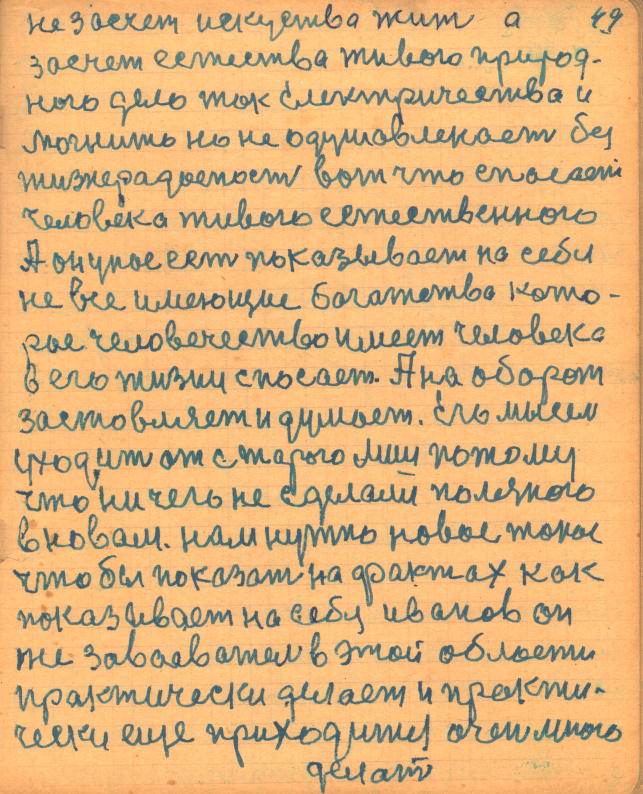 не засчет искуства жит а 49
засчет естества живого природ-
ного дело ток електричества и
могнить но не одушовлекает без
жизнерадосност вот что спасает
человека живого естественного
А он уносеет показывает на себя
не все имеющие богатства кото-
рые человечество имеет человека
в его жизни спасает. А на оборот
заставляет и думает. Его мысел
уходит от старого мии потому
что ничего не сделаиш полезного
в новам. нам нужно новое токое
чтобы показат на фрактах как
показивает на себя иванов он
же завоевател в этой области
практически делает и практи-
чески еще приходится очен много
делат